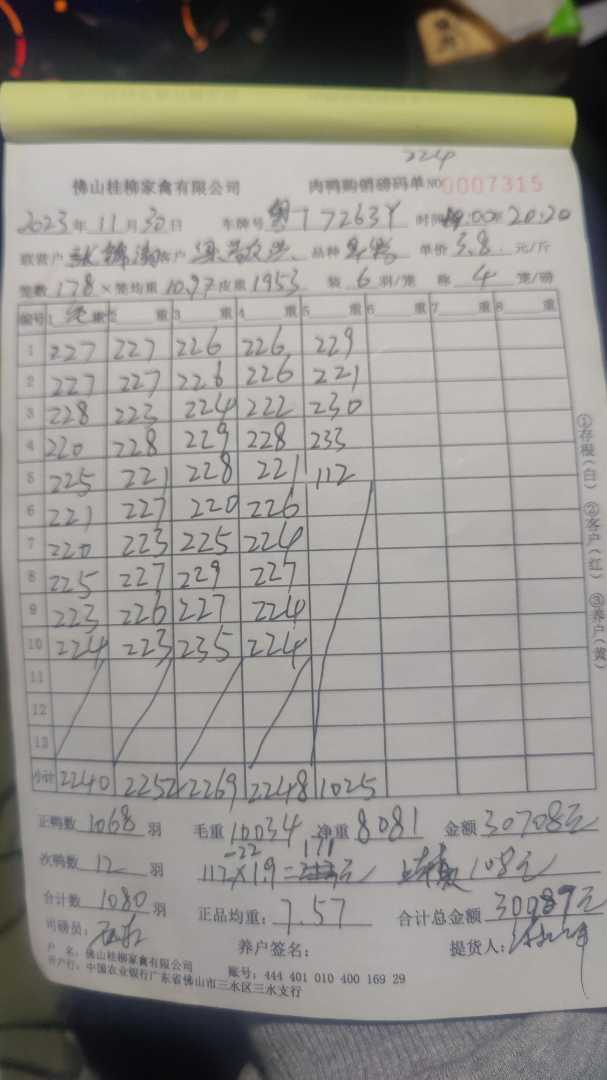 224
佛山桂柳家禽有限公司 肉鸭购销磅码单 NO 0007315
2023年11月30日 车牌号 粤T7263Y 时间 20:20
联营户 客户 品种 单价 3.8 元/斤
笼数 178 × 笼均重 10.97 皮重 1953 装 6 羽/笼 称 4 笼/磅
编号 1 重 2 重 3 重 4 重 5 重 6 重 7 重 8 重
1 227 227 226 226 229
2 227 227 226 226 221
3 228 223 224 222 230
4 220 228 229 228 233
5 225 221 228 221 112
6 221 227 220 226
7 220 223 225 224
8 225 227 229 227
9 223 226 227 224
10 224 223 235 224
11
12
13
小计 2240 2252 2269 2248 1025
正鸭数 1068 羽 毛重 10034 净重 8081 金额 30708元
-22 171
次鸭数 12 羽 112×19= 元 108元
合计数 1080 羽 正品均重: 7.57 合计总金额 30089元
司磅员: 养户签名: 提货人:
户 名: 佛山桂柳家禽有限公司 账号: 444 401 010 400 169 29
开户行: 中国农业银行广东省佛山市三水区三水支行
①存根(白) ②客户(红) ③养户(黄)